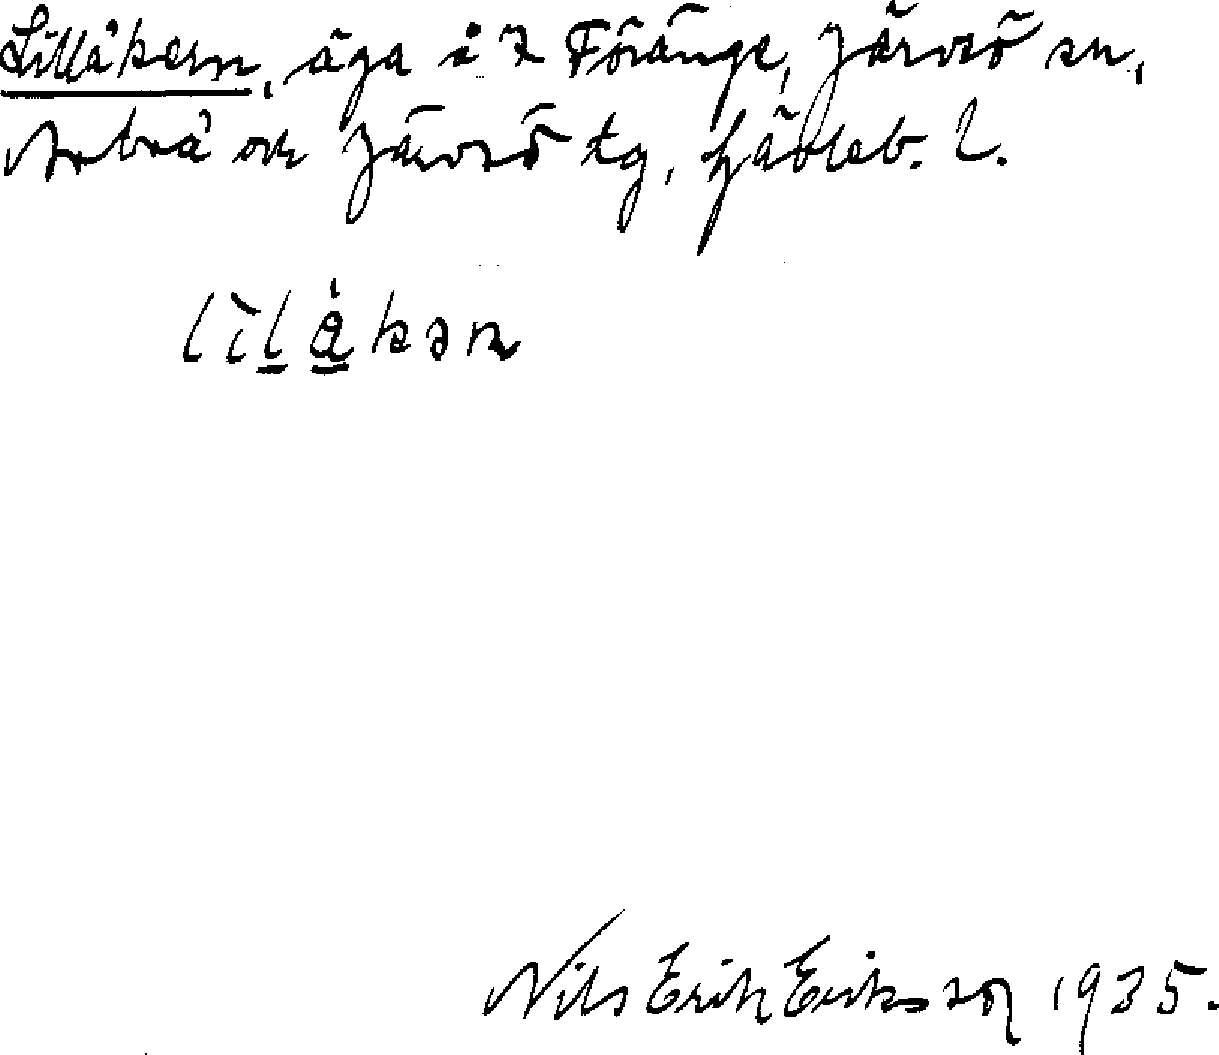 Lillåkern, äga i 7 Föränge, Järvsö sn,
Arbrå och Järvsö tg, Gävleb. l.
lilåkan
Nils Erik Eriksson 1935.